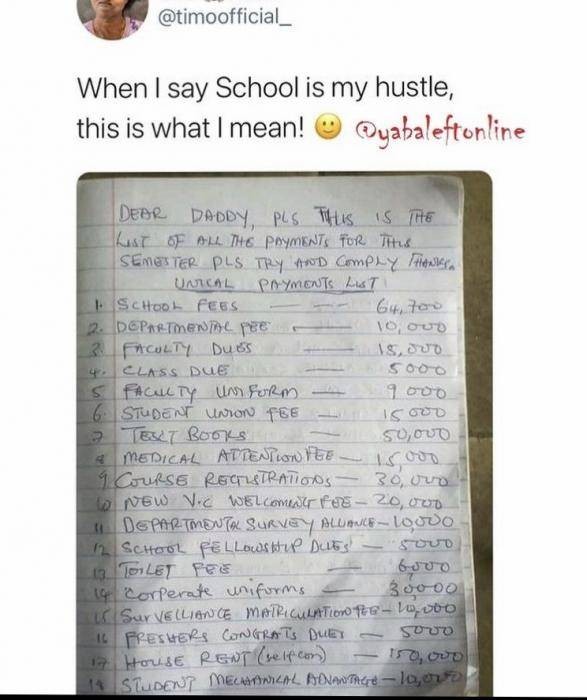 @timoofficial_
When I say School is my hustle,
this is what I mean! 🙂 @yabaleftonline
DEAR DADDY, PLS THIS IS THE
LIST OF ALL THE PAYMENTS FOR THIS
SEMESTER PLS TRY AND COMPLY THANKS.
UNICAL PAYMENTS LIST
1. SCHOOL FEES — — — 64,700
2. DEPARTMENTAL FEE — 10,000
3. FACULTY DUES — 18,000
4. CLASS DUE — 5000
5 FACULTY UNIFORM — 9000
6. STUDENT UNION FEE — 15000
7 TEXT BOOKS — 50,000
8 MEDICAL ATTENTION FEE — 15,000
9 COURSE REGISTRATIONS — 30,000
10 NEW V.C WELCOMING FEE – 20,000
11 DEPARTMENTAL SURVEY ALLIANCE – 10,000
12 SCHOOL FELLOWSHIP DUES — 5000
13 TOILET FEE — 6000
14 Corperate uniforms — 30000
15 SURVELLIANCE MATRICULATION FEE – 10,000
16 FRESHERS CONGRATS DUES — 5000
17 HOUSE RENT (selfcon) — 150,000
18 STUDENT MECHANICAL ADVANTAGE – 10,000